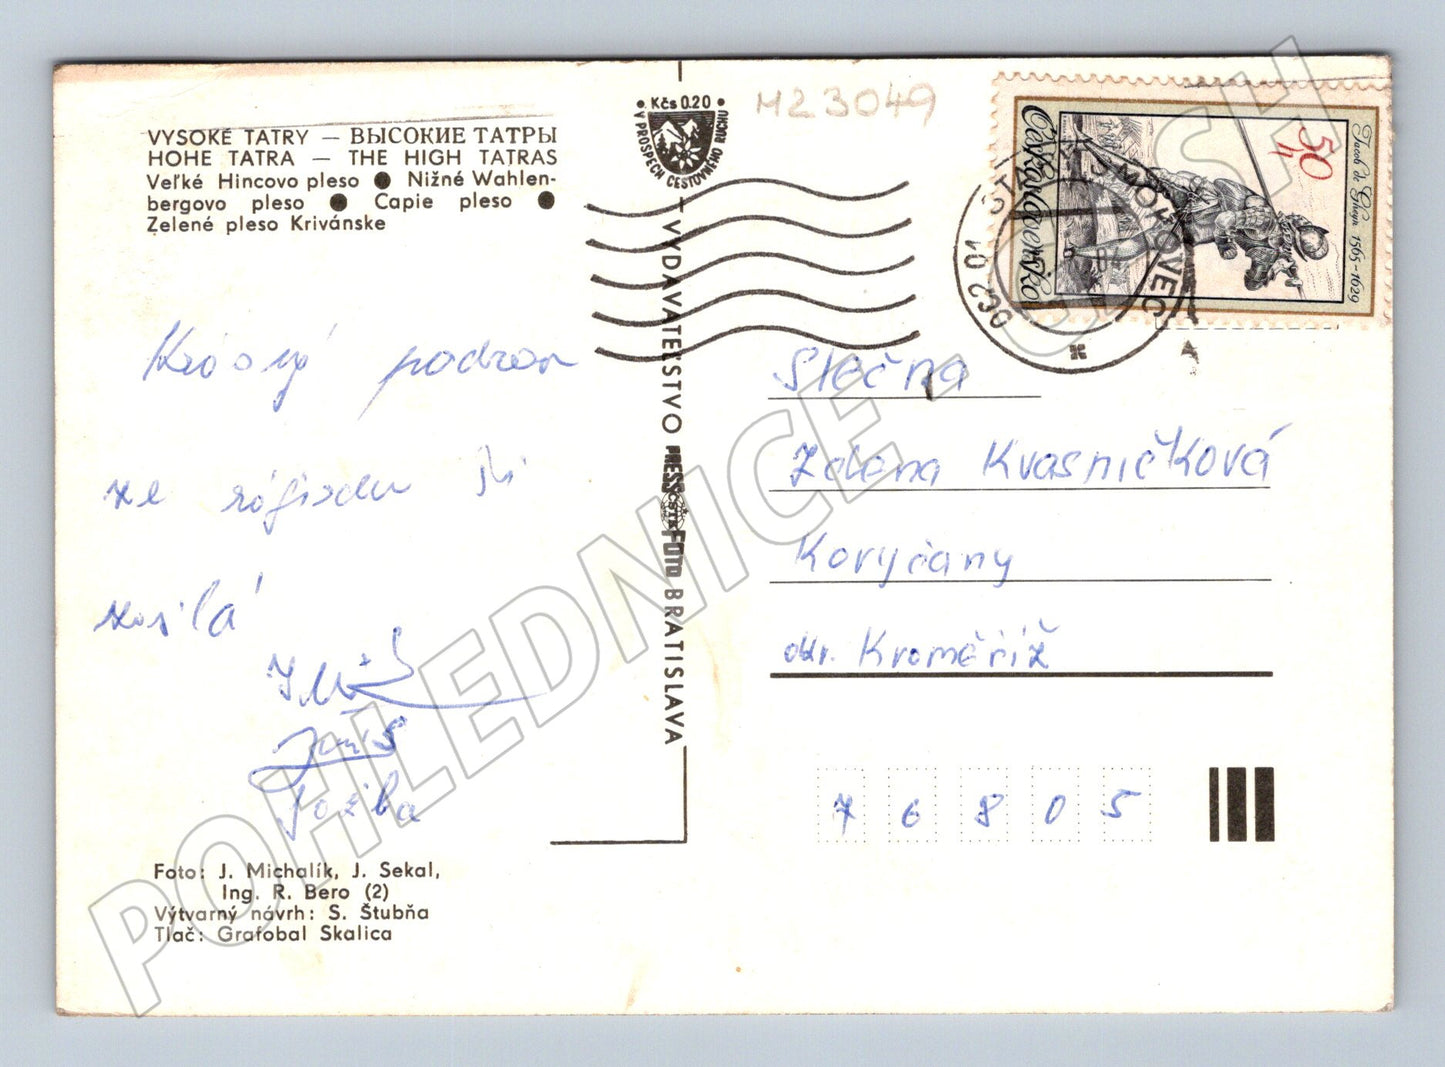 VYSOKÉ TATRY – ВЫСОКИЕ ТАТРЫ
HOHE TATRA – THE HIGH TATRAS
Veľké Hincovo pleso ● Nižné Wahlen-
bergovo pleso ● Capie pleso ●
Zelené pleso Krivánske
• Kčs 0.20 •
V PROSPECH CESTOVNÉHO RUCHU
M23049
Československo
50 h
Jacob de Gheyn 1565-1629
062 01 STARÝ SMOKOVEC
Krásný pozdrav
ze zájezdu ti
posílá
Jožka
Foto: J. Michalík, J. Sekal,
Ing. R. Bero (2)
Výtvarný návrh: S. Štubňa
Tlač: Grafobal Skalica
– VYDAVATEĽSTVO PRESSFOTO BRATISLAVA
ČSTK
Slečna
Zdena Kvasničková
Koryčany
okr. Kroměříž
76805
POHLEDNICE - CASH